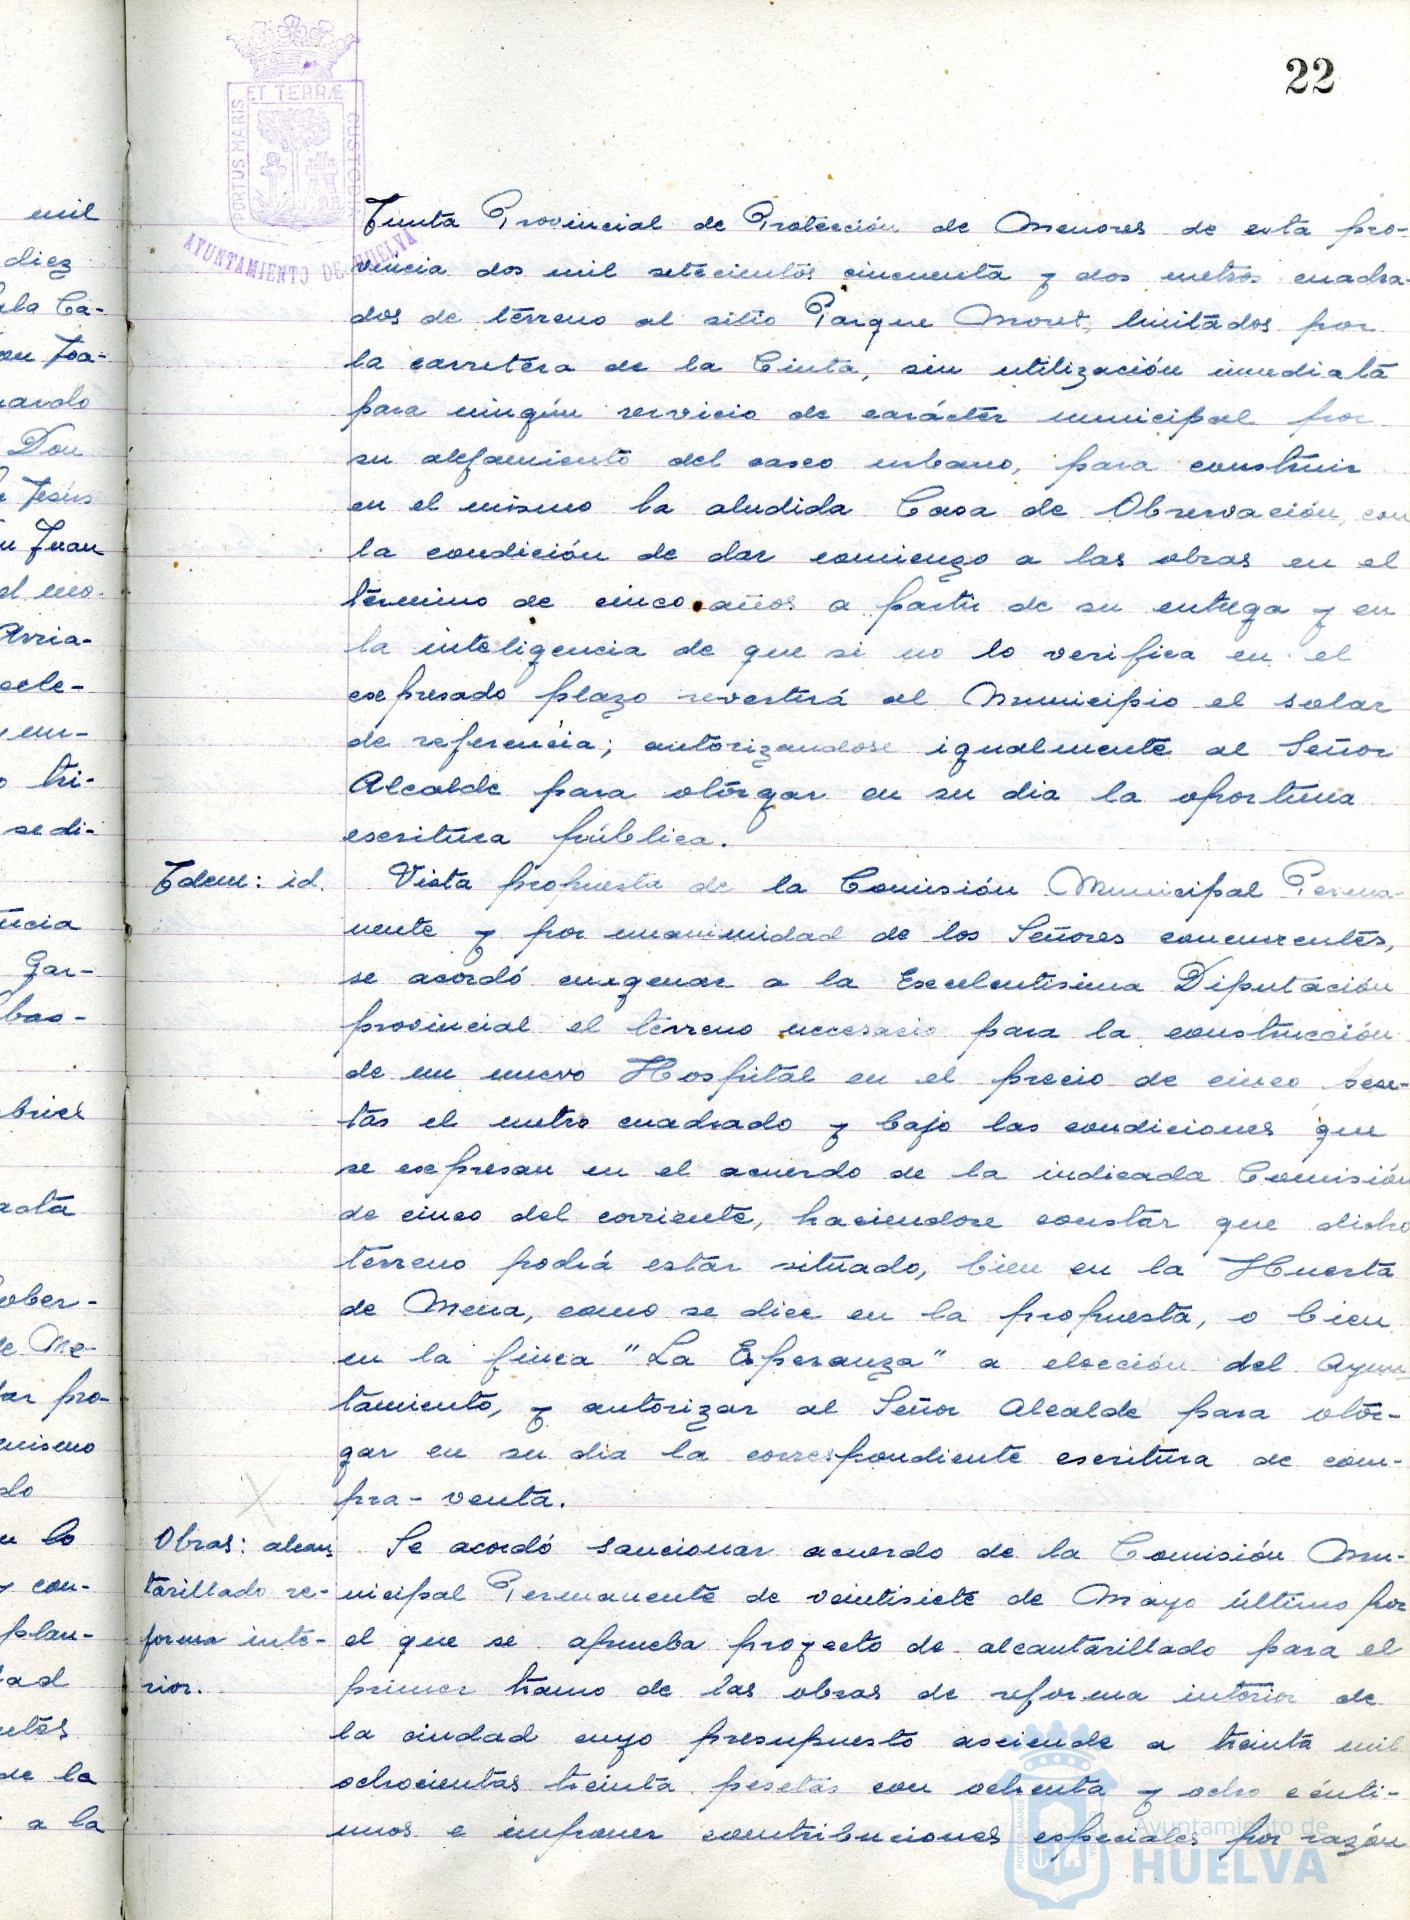 22
PORTUS MARIS
ET TERRÆ
CUSTODIA
AYUNTAMIENTO DE HUELVA
mil
diez
Ca-
Joa-
Don
Jesús
Juan
mo-
Arria-
cele-
tri-
se di-
Gar-
ober-
de Me-
pro-
mismo
lo
y con-
plan-
de la
a la
Junta Provincial de Protección de Menores de esta pro-
vincia dos mil setecientos cincuenta y dos metros cuadra-
dos de terreno al sitio Parque Moret, limitados por
la carretera de la Cinta, sin utilización inmediata
para ningún servicio de carácter municipal por
su alejamiento del casco urbano, para construir
en el mismo la aludida Casa de Observación, con
la condición de dar comienzo a las obras en el
término de cinco años a partir de su entrega y en
la inteligencia de que si no lo verifica en el
expresado plazo revertirá al Municipio el solar
de referencia; autorizandose igualmente al Señor
Alcalde para otorgar en su dia la oportuna
escritura pública.
Idem: id. Vista propuesta de la Comisión Municipal Perma-
nente y por unanimidad de los Señores concurrentes,
se acordó enagenar a la Excelentisima Diputación
provincial el terreno necesario para la construcción
de un nuevo Hospital en el precio de cinco pese-
tas el metro cuadrado y bajo las condiciones que
se expresan en el acuerdo de la indicada Comisión
de cinco del corriente, haciendose constar que dicho
terreno podrá estar situado, bien en la Huerta
de Mena, como se dice en la propuesta, o bien
en la finca "La Esperanza" a elección del Ayun-
tamiento, y autorizar al Señor Alcalde para otor-
gar en su dia la correspondiente escritura de com-
pra-venta.
Obras: alcan- Se acordó sancionar acuerdo de la Comisión Mu-
tarillado re- nicipal Permanente de veintisiete de Mayo último por
forma inte- el que se aprueba proyecto de alcantarillado para el
rior. primer tramo de las obras de reforma interior de
la ciudad cuyo presupuesto asciende a treinta mil
ochocientas treinta pesetas con ochenta y ocho cénti-
mos e imponer contribuciones especiales por razón
Ayuntamiento de
HUELVA